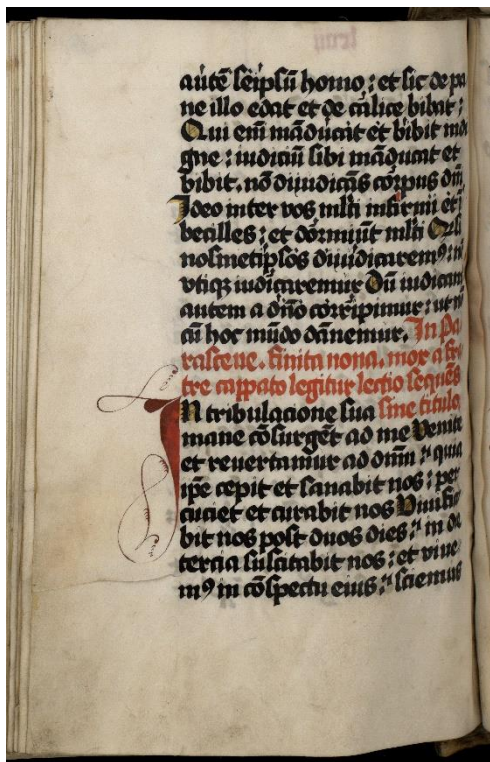 autē seipsū homo : et sic de pa
ne illo edat et de calice bibat :
Qui eni māducat et bibit indi
gne : iudiciū sibi māducat et
bibit . nō diiudicās corpus dni
Ideo inter vos mlti infirmi et ī
becilles : et dormiūt mlti Qd si
nosmetipsos diiudicarem⁹ : nō
vtiqꝫ iudicaremur Dū iudicam
autem a dño corripimur : ut nō
cū hoc mūdo dānemur . In Pa
rasceue . finita nona . mox a fra
tre cappato legitur lectio sequēs
IN tribulacione sua sine titulo
mane cōsurgēt ad me Venite
et revertamur ad dūm : quia
ipē cepit et sanabit nos : per
cuciet et curabit nos Viuifica
bit nos post duos dies : in die
tercia suscitabit nos : et viue
m⁹ in cōspectu eius : sciemus